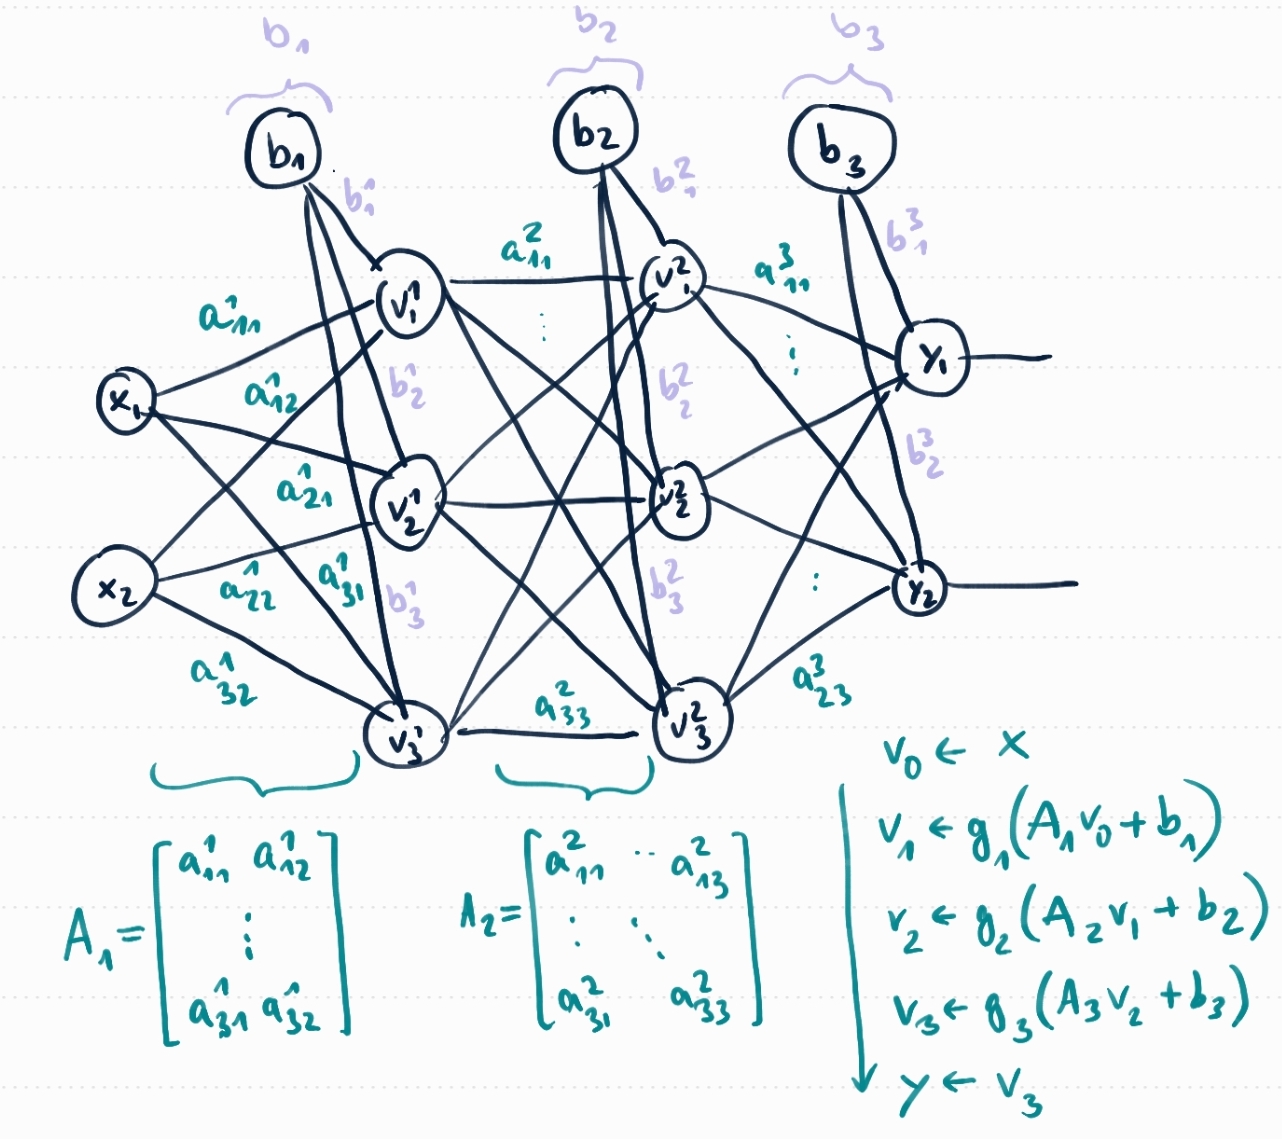 b₁ b₂ b₃
b₁ b₂ b₃
b₁¹ b₁² b₁³
a₁₁¹ v₁¹ a₁₁² v₁² a₁₁³
x₁ a₁₂¹ b₂¹ ⋮ b₂² ⋮ y₁
a₂₁¹ v₂¹ v₂² b₂³
x₂ a₂₂¹ a₃₁¹ b₃¹ b₃² ⋮ y₂
a₃₂¹ v₃¹ a₃₃² v₃² a₂₃³
A₁ = [ a₁₁¹ a₁₂¹
⋮
a₃₁¹ a₃₂¹ ]
A₂ = [ a₁₁² ·· a₁₃²
⋮ ⋱
a₃₁² a₃₃² ]
v₀ ← x
v₁ ← g₁(A₁v₀ + b₁)
v₂ ← g₂(A₂v₁ + b₂)
v₃ ← g₃(A₃v₂ + b₃)
y ← v₃